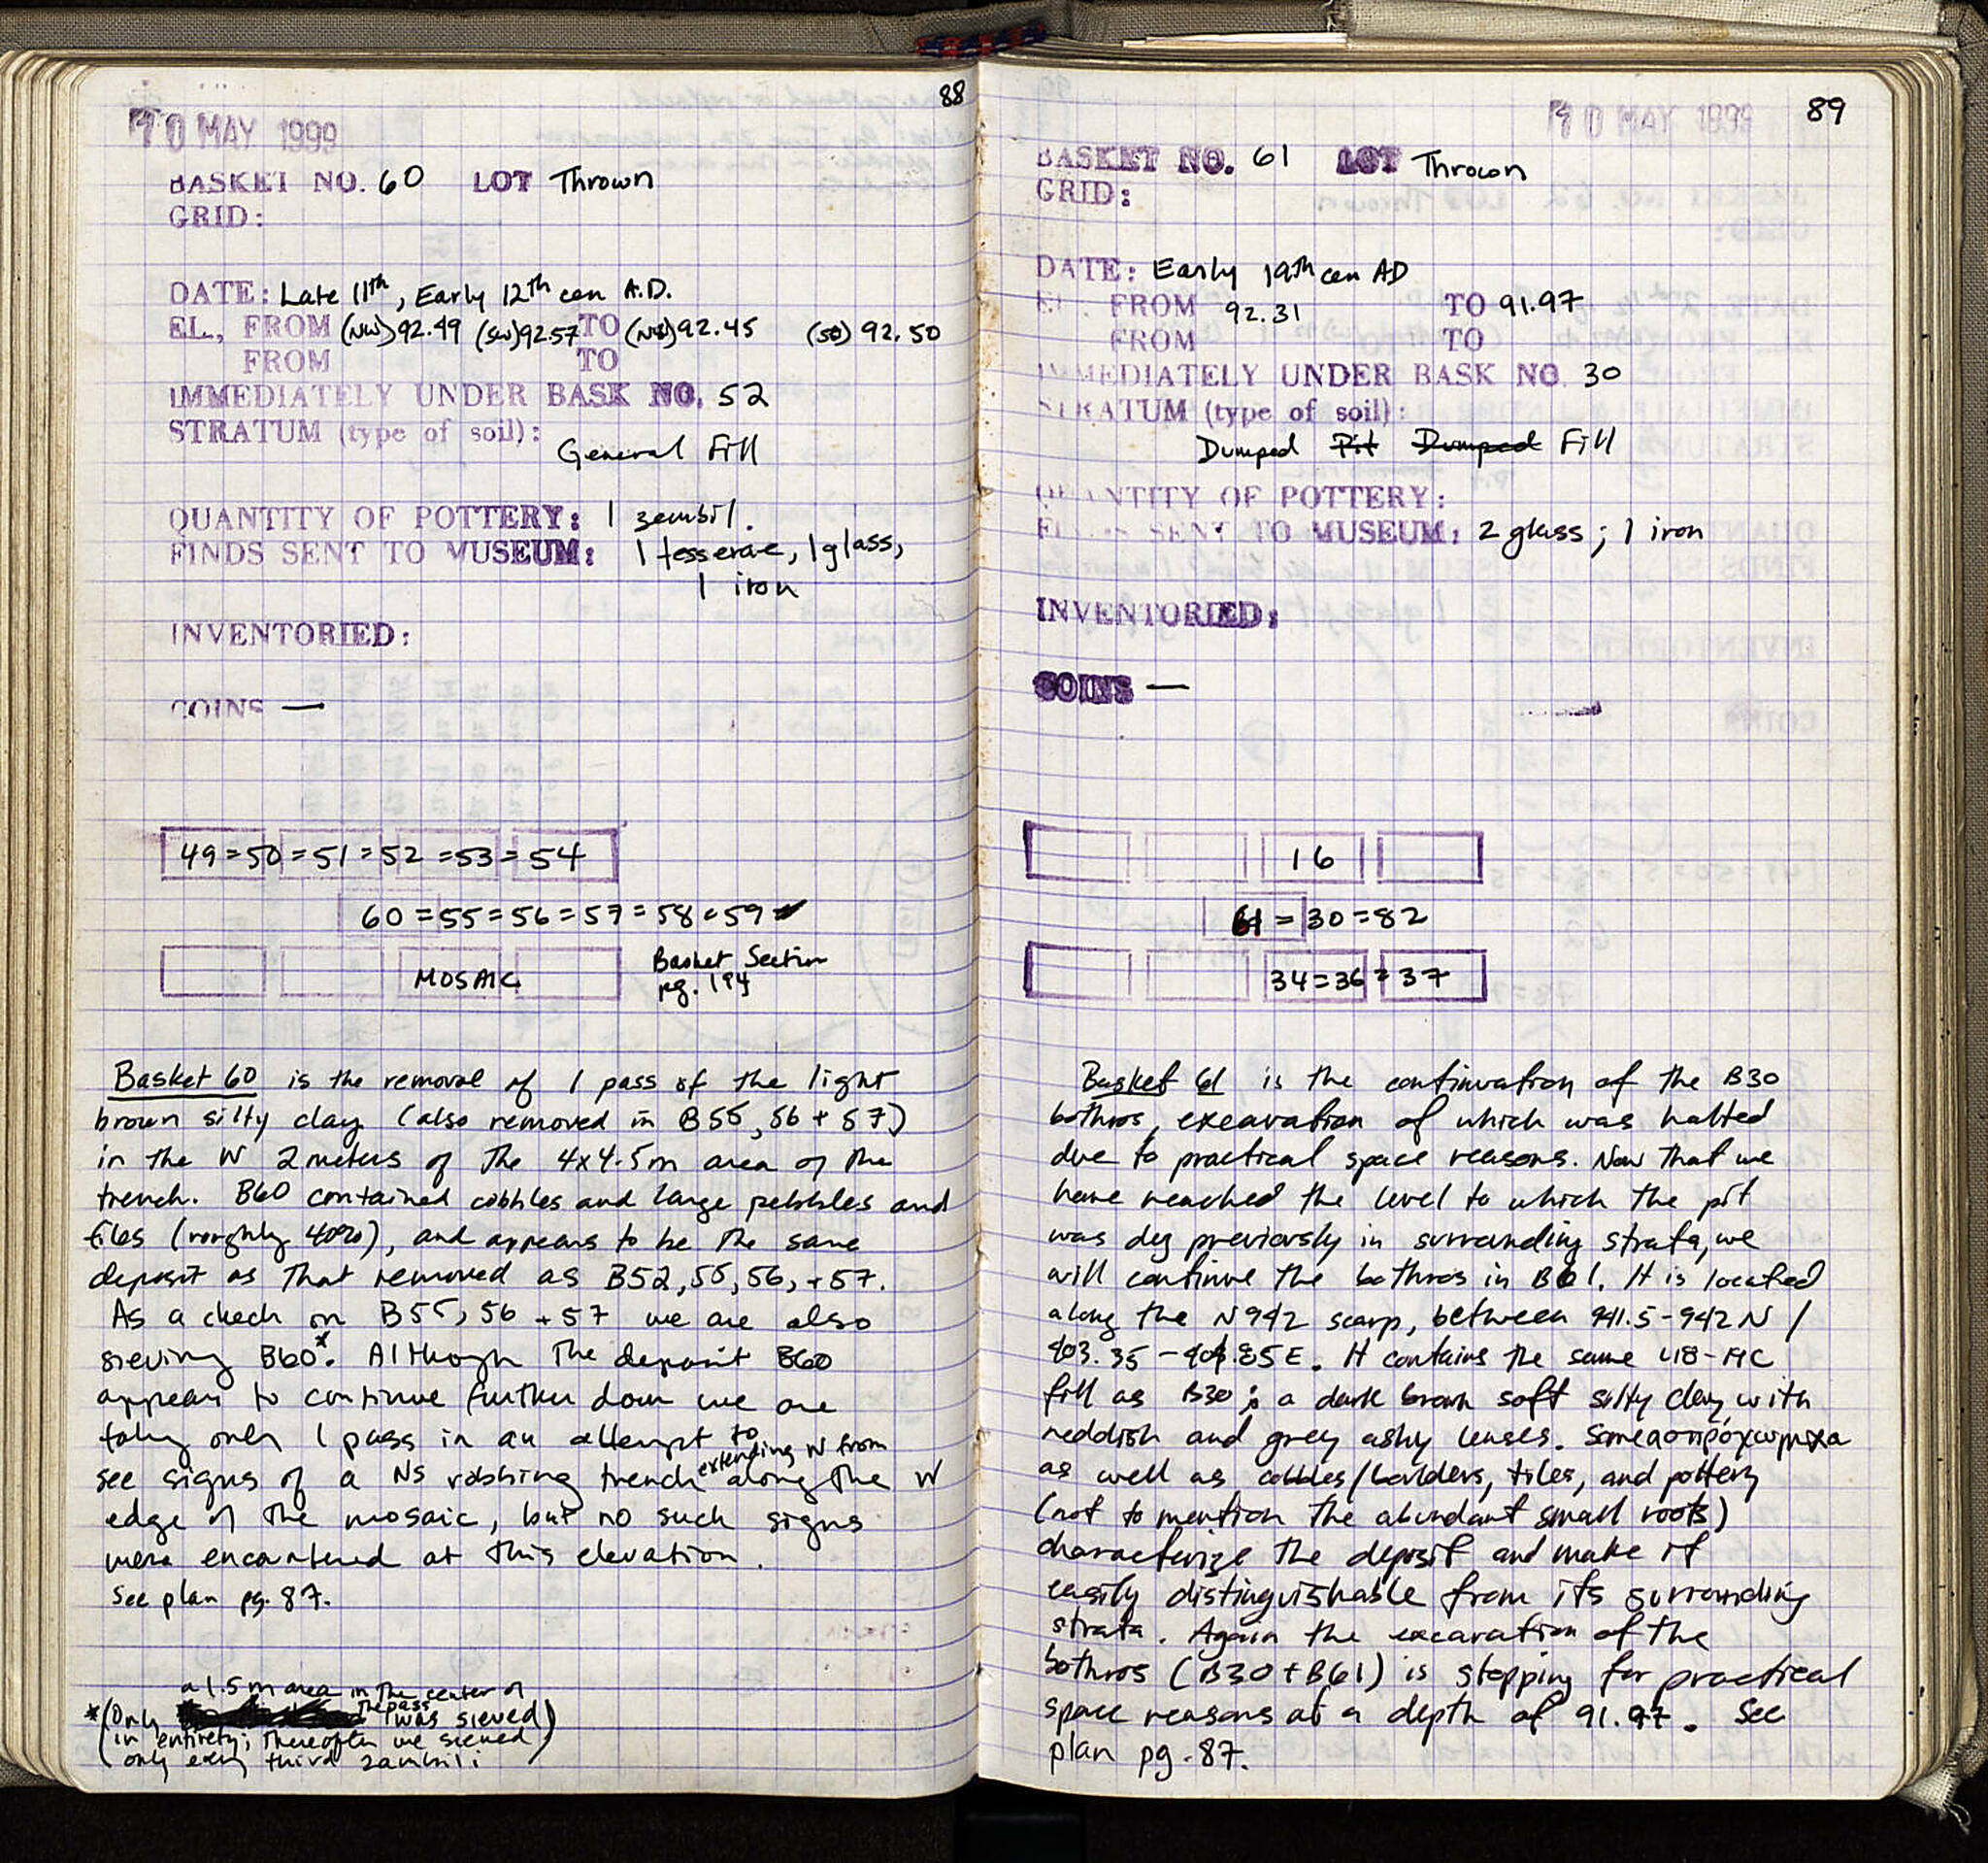 88
10 MAY 1999
BASKET NO. 60 LOT Thrown
GRID:
DATE: Late 11th, Early 12th cen A.D.
EL., FROM (NW) 92.49 (SW) 92.57 TO (NE) 92.45 (SE) 92.50
FROM TO
IMMEDIATELY UNDER BASK NO. 52
STRATUM (type of soil):
General Fill
QUANTITY OF POTTERY: 1 zembil.
FINDS SENT TO MUSEUM: 1 tesserae, 1 glass,
1 iron
INVENTORIED:
COINS —
49=50=51=52=53=54
60=55=56=57=58=59
MOSAIC
Basket Section
pg. 194
Basket 60 is the removal of 1 pass of the light
brown silty clay (also removed in B55, 56 + 57)
in the W 2 meters of the 4x4.5m area of the
trench. B60 contained cobbles and large pebbles and
tiles (roughly 40%), and appears to be the same
deposit as that removed as B52, 55, 56, +57.
As a check on B55, 56 + 57 we are also
sieving B60*. Although the deposit B60
appears to continue further down we are
taking only 1 pass in an attempt to
see signs of a NS robbing trench extending N from along the W
edge of the mosaic, but no such signs
were encountered at this elevation.
See plan pg. 87.
a 1.5 m area in the center of
*(Only the pass was sieved)
(in entirety; thereafter we sieved)
only every third zambili
10 MAY 1999 89
BASKET NO. 61 LOT Thrown
GRID:
DATE: Early 19th cen AD
EL. FROM 92.31 TO 91.97
FROM TO
IMMEDIATELY UNDER BASK NO. 30
STRATUM (type of soil):
Dumped Pit Dumped Fill
QUANTITY OF POTTERY:
FINDS SENT TO MUSEUM: 2 glass; 1 iron
INVENTORIED:
COINS —
16
61=30=82
34=36=37
Basket 61 is the continuation of the B30
bothros, excavation of which was halted
due to practical space reasons. Now that we
have reached the level to which the pit
was dug previously in surrounding strata, we
will continue the bothros in B61. It is located
along the N942 scarp, between 941.5-942 N /
403.35 - 404.85 E. It contains the same L18-19C
fill as B30; a dark brown soft silty clay with
reddish and grey ashy lenses. Some ασπρόχωμα
as well as cobbles/boulders, tiles, and pottery
(not to mention the abundant small roots)
characterize the deposit and make it
easily distinguishable from its surrounding
strata. Again the excavation of the
bothros (B30+B61) is stopping for practical
space reasons at a depth of 91.97. See
plan pg. 87.